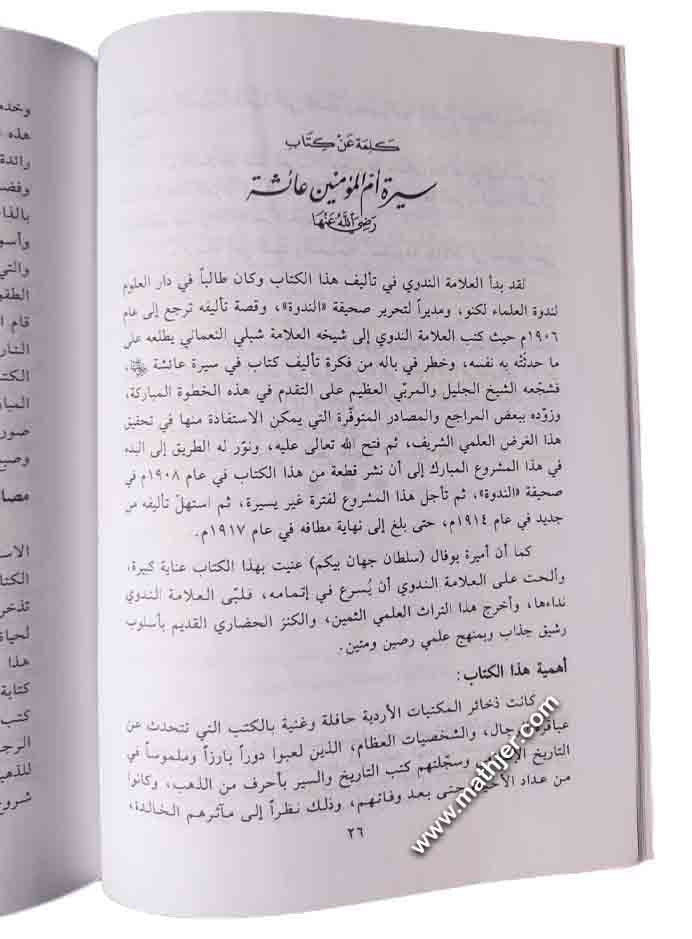 كلمة عن كتاب
سيرة أم المؤمنين عائشة
رضي الله عنها
لقد بدأ العلامة الندوي في تأليف هذا الكتاب وكان طالباً في دار العلوم
لندوة العلماء لكنو، ومديراً لتحرير صحيفة «الندوة»، وقصة تأليفه ترجع إلى عام
١٩٠٦م حيث كتب العلامة الندوي إلى شيخه العلامة شبلي النعماني يطلعه على
ما حدثته به نفسه، وخطر في باله من فكرة تأليف كتاب في سيرة عائشة ،
فشجّعه الشيخ الجليل والمربّي العظيم على التقدم في هذه الخطوة المباركة،
وزوّده ببعض المراجع والمصادر المتوفّرة التي يمكن الاستفادة منها في تحقيق
هذا الغرض العلمي الشريف، ثم فتح الله تعالى عليه، ونوّر له الطريق إلى البدء
في هذا المشروع المبارك إلى أن نشر قطعة من هذا الكتاب في عام ١٩٠٨م في
صحيفة «الندوة»، ثم تأجل هذا المشروع لفترة غير يسيرة، ثم استهلّ تأليفه من
جديد في عام ١٩١٤م، حتى بلغ إلى نهاية مطافه في عام ١٩١٧م.
كما أن أميرة بوفال (سلطان جهان بيكم) عنيت بهذا الكتاب عناية كبيرة،
وألحت على العلامة الندوي أن يُسرع في إتمامه، فلبّى العلامة الندوي
نداءها، وأخرج هذا التراث العلمي الثمين، والكنز الحضاري القديم بأسلوب
رشيق جذاب وبمنهج علمي رصين ومتين.
أهمية هذا الكتاب:
كانت ذخائر المكتبات الأردية حافلة وغنية بالكتب التي تتحدث عن
عباقرة الرجال، والشخصيات العظام، الذين لعبوا دوراً بارزاً وملموساً في
التاريخ وسجّلتهم كتب التاريخ والسير بأحرف من الذهب، وكانوا
من عداد حتى بعد وفاتهم، وذلك نظراً إلى مآثرهم الخالدة،
٢٦
www.mathjer.com